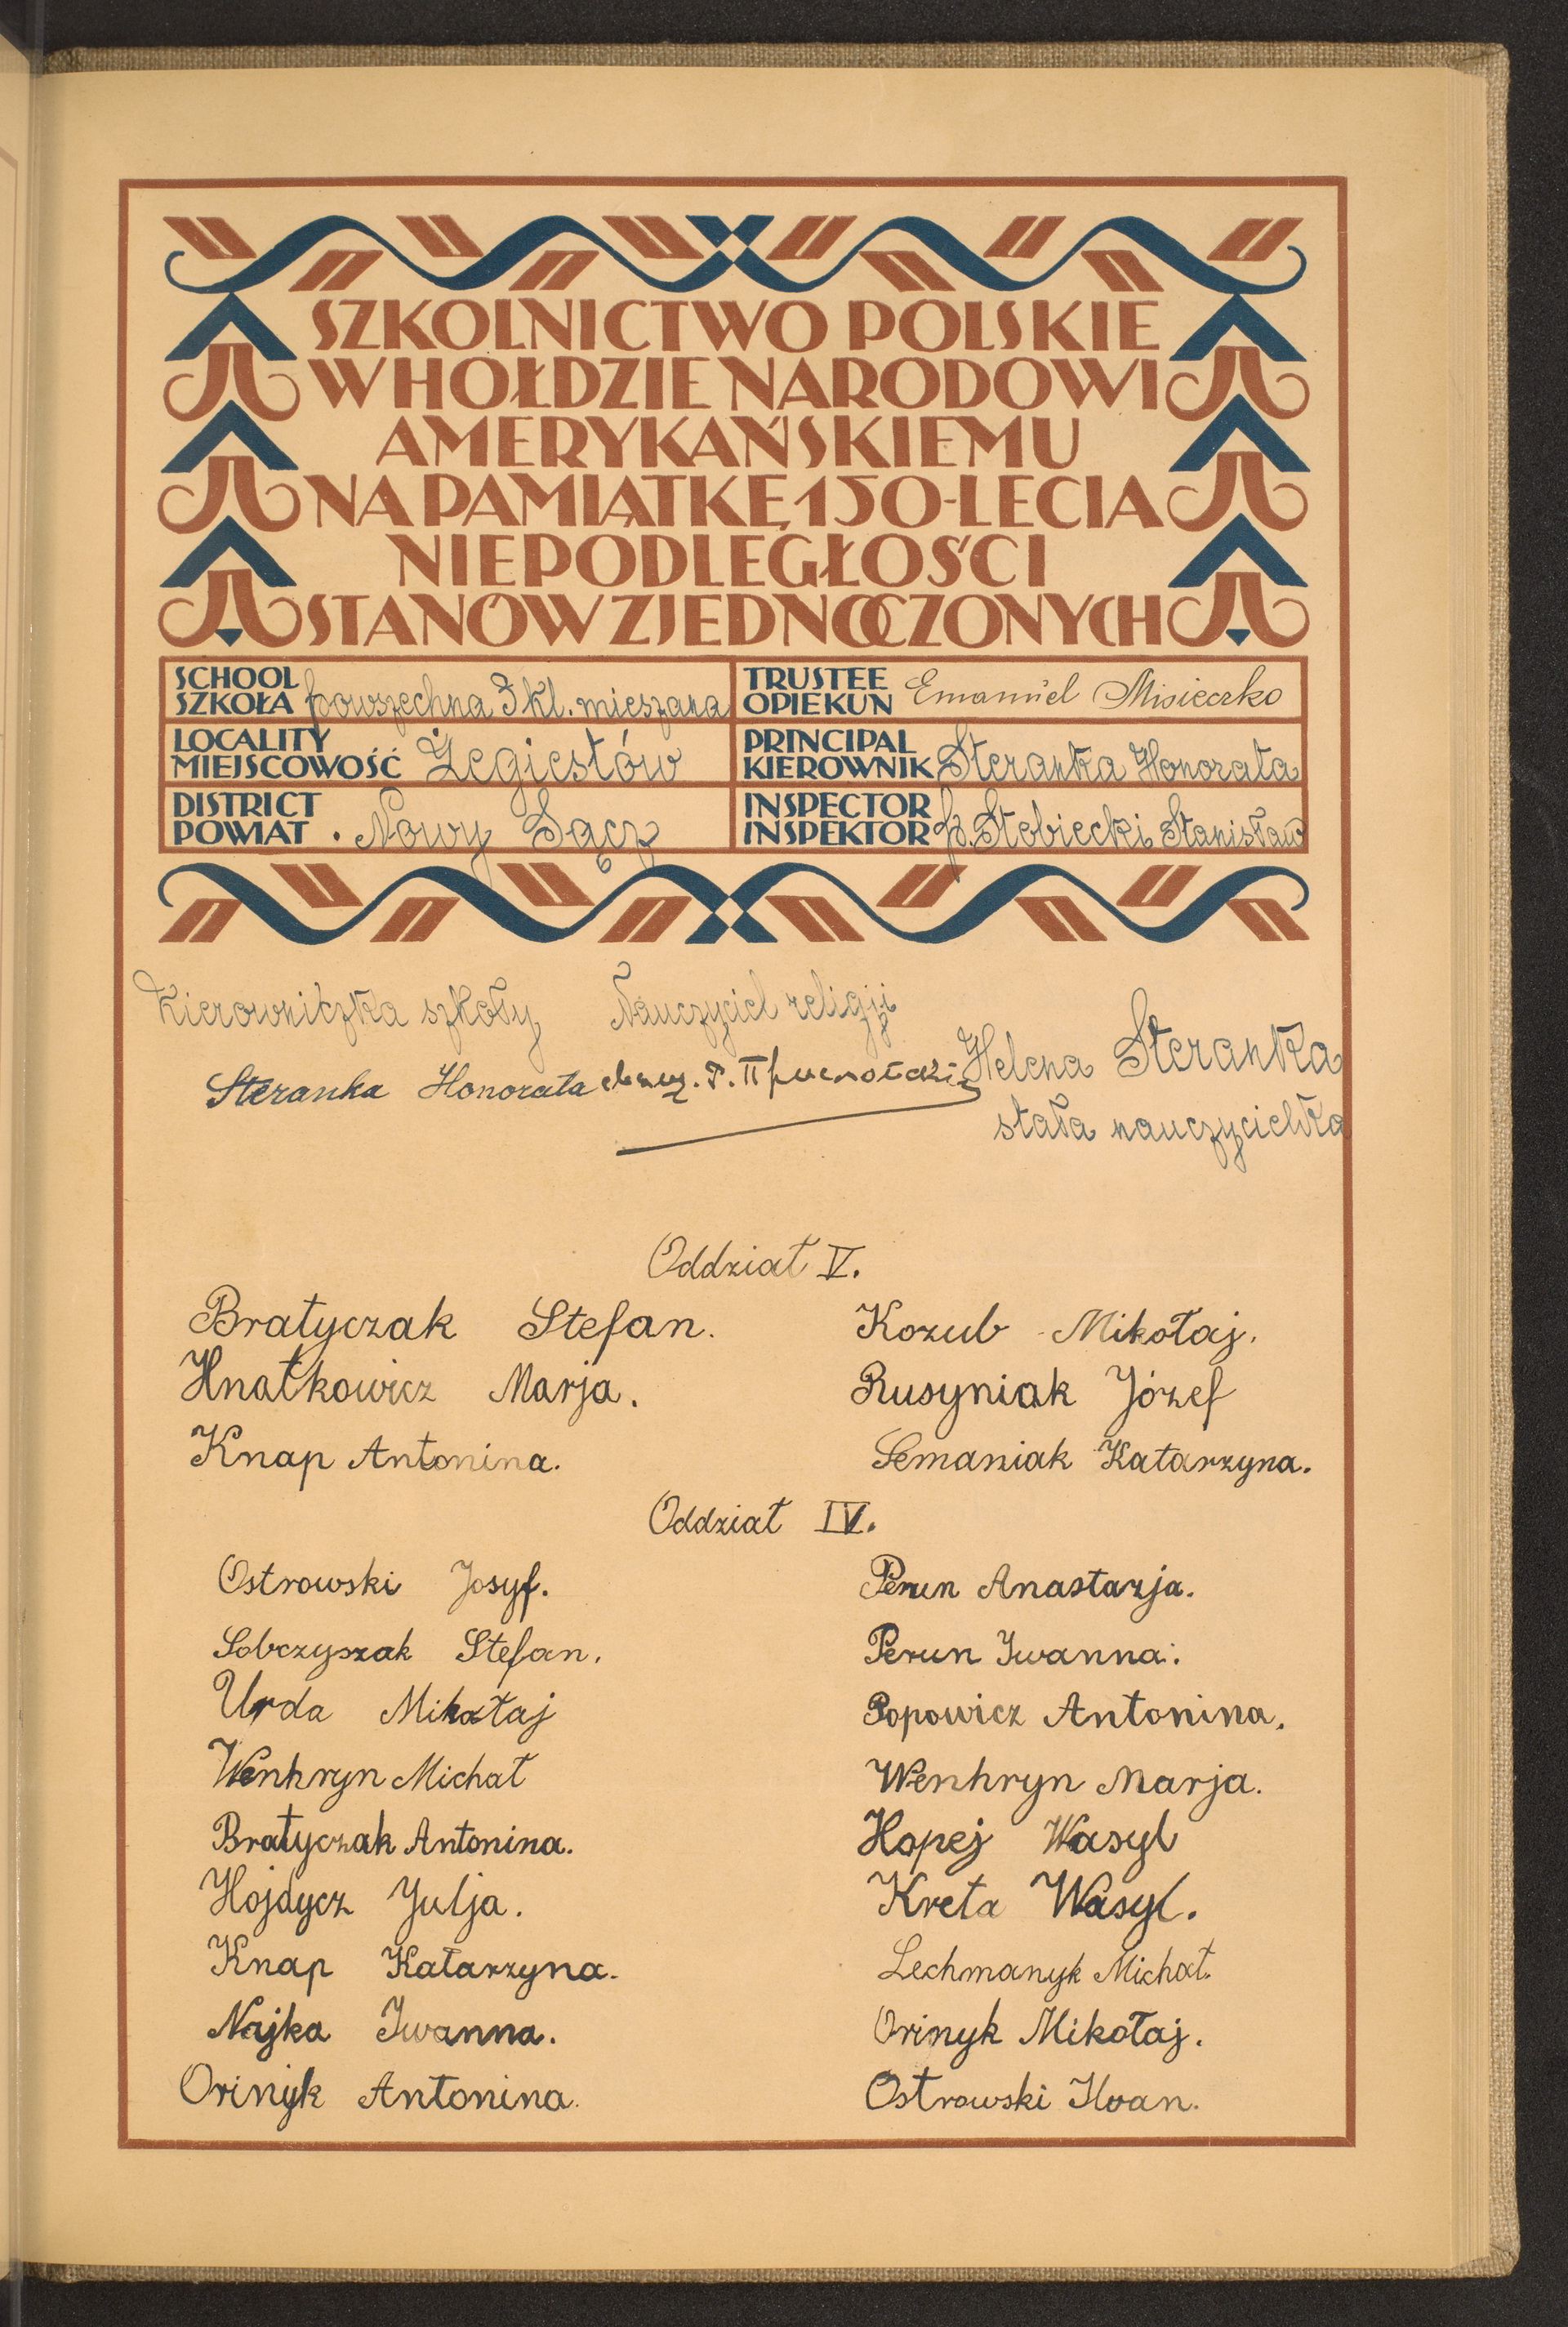 SZKOLNICTWO POLSKIE
W HOŁDZIE NARODOWI
AMERYKAŃSKIEMU
NA PAMIĄTKĘ 150-LECIA
NIEPODLEGŁOŚCI
STANÓW ZJEDNOCZONYCH
SCHOOL
SZKOŁA powszechna 3 kl. mieszana
TRUSTEE
OPIEKUN Emanuel Misieczko
LOCALITY
MIEJSCOWOŚĆ Żegiestów
PRINCIPAL
KIEROWNIK Steranka Honorata
DISTRICT
POWIAT Nowy Sącz
INSPECTOR
INSPEKTOR p. Stobiecki Stanisław
Kierowniczka szkoły
Steranka Honorata
Nauczyciel religji
Helena Steranka
stała nauczycielka
Oddział V.
Bratyczak Stefan. Kozub Mikołaj.
Hnatkowicz Marja. Rusyniak Józef
Knap Antonina. Semaniak Katarzyna.
Oddział IV.
Ostrowski Josyf. Perun Anastazja.
Sobczyszak Stefan. Perun Iwanna.
Urda Mikołaj Popowicz Antonina.
Wenhryn Michał Wenhryn Marja.
Bratyczak Antonina. Hopej Wasyl
Hojdycz Julja. Kreta Wasyl.
Knap Katarzyna. Lechmanyk Michał.
Najka Iwanna. Orinyk Mikołaj.
Orinyk Antonina. Ostrowski Iwan.